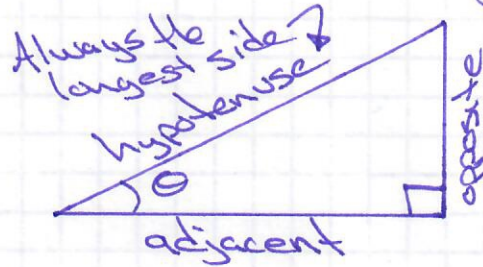 Always the
longest side
hypotenuse
θ
opposite
adjacent